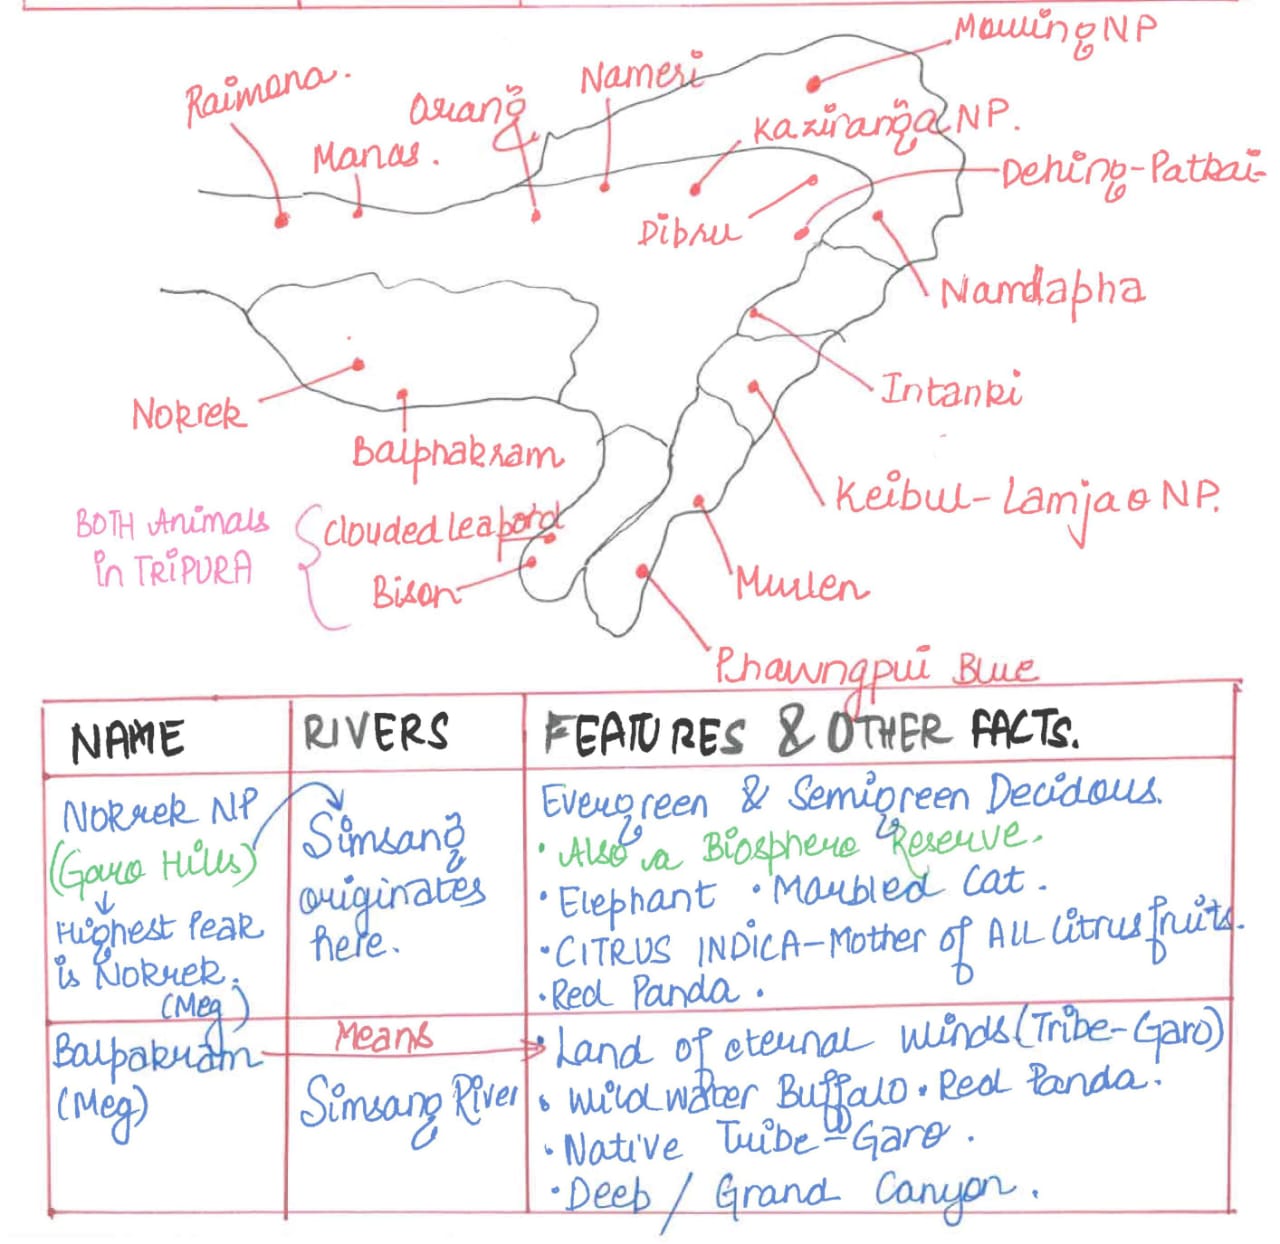 Mouling NP
Raimona.
Orang
Nameri
Manas.
Kaziranga NP.
Dehing-Patkai-
Dibru
Namdapha
Intanki
Nokrek
Balphakram
Keibul-Lamjao NP.
BOTH Animals
in TRIPURA
Clouded leapord
Bison
Murlen
Phawngpui Blue
NAME
RIVERS
FEATURES & OTHER FACTS.
Nokrek NP
(Garo Hills)
Highest Peak
is Nokrek.
(Meg)
Simsang
originates
here.
Evergreen & Semigreen Decidous.
• Also a Biosphere Reserve.
• Elephant • Marbled Cat.
• CITRUS INDICA-Mother of ALL Citrus fruits.
• Red Panda.
Balpakram
(Meg)
Means
Simsang River
• Land of eternal winds (Tribe-Garo)
• Wild water Buffalo • Red Panda.
• Native Tribe-Garo.
• Deep / Grand Canyon.